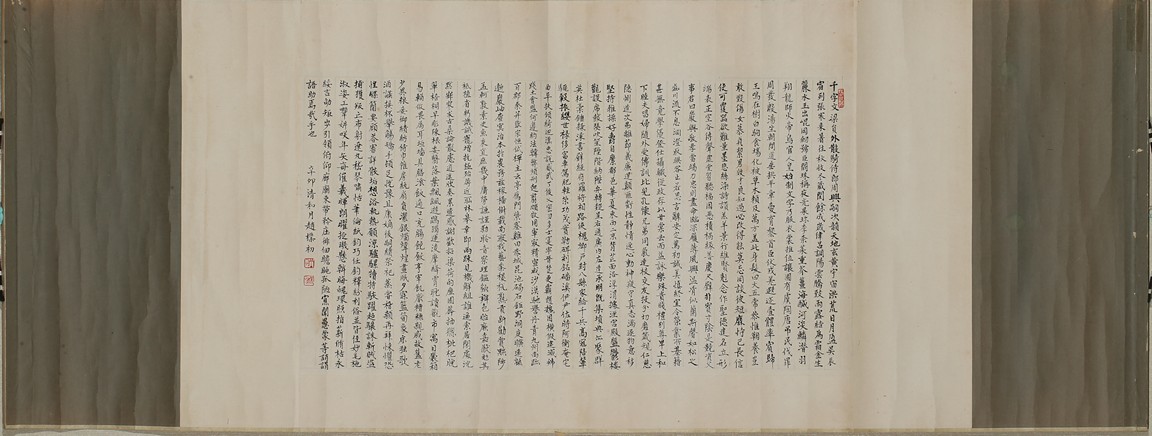 千字文梁員外散騎侍郎周興嗣次韻天地玄黃宇宙洪荒日月盈昃辰
宿列張寒來暑往秋收冬藏閏餘成歲律呂調陽雲騰致雨露結為霜金生
麗水玉出崑岡劍號巨闕珠稱夜光果珍李柰菜重芥薑海鹹河淡鱗潛羽
翔龍師火帝鳥官人皇始制文字乃服衣裳推位讓國有虞陶唐弔民伐罪
周發殷湯坐朝問道垂拱平章愛育黎首臣伏戎羌遐邇壹體率賓歸
王鳴鳳在樹白駒食場化被草木賴及萬方蓋此身髮四大五常恭惟鞠養豈
敢毀傷女慕貞絜男效才良知過必改得能莫忘罔談彼短靡恃己長信
使可覆器欲難量墨悲絲染詩讚羔羊景行維賢剋念作聖德建名立形
端表正空谷傳聲虛堂習聽禍因惡積福緣善慶尺璧非寶寸陰是競資父
事君曰嚴與敬孝當竭力忠則盡命臨深履薄夙興溫凊似蘭斯馨如松之
盛川流不息淵澄取映容止若思言辭安定篤初誠美慎終宜令榮業所基籍
甚無竟學優登仕攝職從政存以甘棠去而益詠樂殊貴賤禮別尊卑上和
下睦夫唱婦隨外受傅訓比兒孔懷兄弟同氣連枝交友投分切磨箴規仁慈
隱惻造次弗離節義廉退顛沛匪虧性靜情逸心動神疲守真志滿逐物意移
堅持雅操好爵自縻都邑華夏東西二京背芒面洛浮渭據涇宮殿盤鬱樓
觀設席鼓瑟吹笙陞階納陛弁轉疑星右通廣內左達承明既集墳典亦聚群
英杜稾鍾隸漆書壁經府羅將相路俠槐卿戶封八縣家給千兵高冠陪輦
驅轂振纓世祿侈富車駕肥輕策功茂實勒碑刻銘磻溪伊尹佐時阿衡奄宅
曲阜扶傾綺迴漢惠說感武丁俊乂密勿多士寔寧晉楚更霸趙魏困橫假途滅虢
踐土會盟何遵約法韓弊煩刑起翦頗牧用軍最精宣威沙漠馳譽丹青九州禹跡
百郡秦并嶽宗恒岱禪主云亭雁門紫塞雞田赤城昆池碣石鉅野洞庭曠遠緜
邈巖岫杳冥治本於農務茲稼穡俶載南畝我藝黍稷稅熟貢新勸賞黜陟
孟軻敦素史魚秉直庶幾中庸勞謙謹敕聆音察理鑑貌辨色貽厥嘉猷勉其
祗植省躬譏誡寵增抗極殆辱近恥林皋幸即兩疏見機解組誰逼索居閒處沉
默寂寥求古尋論散慮逍遙欣奏累遣慼謝歡招渠荷的歷園莽抽條枇杷晚
翠梧桐早凋陳根委翳落葉飄颻遊鵾獨運凌摩絳霄耽讀翫市寓目囊箱
易輶攸畏屬耳垣牆具膳飧飯適口充腸飽飫烹宰飢厭糟糠親戚故舊老
少異糧妾御績紡侍巾帷房紈扇圓潔銀燭煒煌晝眠夕寐藍筍象床弦歌
酒讌接杯舉觴矯手頓足悅豫且康嫡後嗣續祭祀蒸嘗稽顙再拜悚懼恐
惶牒簡要顧答審詳骸垢想浴執熱願涼驢騾犢特駭躍超驤誅斬賊盜
捕獲叛亡布射遼丸嵇琴阮嘯恬筆倫紙鈞巧任釣釋紛利俗竝皆佳妙毛施
淑姿工顰妍笑年矢每催羲暉朗曜璇璣懸斡晦魄環照指薪修祜永
綏吉劭矩步引領俯仰廊廟束帶矜莊徘徊瞻眺孤陋寡聞愚蒙等誚謂
語助焉哉乎也
辛卯清和月趙樸初